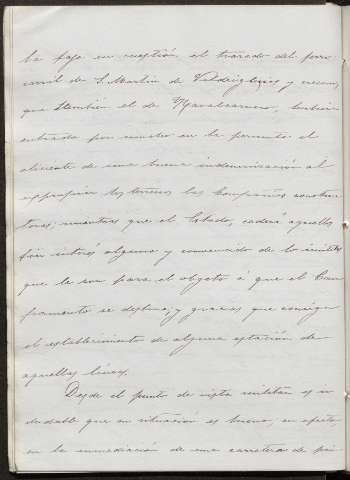 la faja en cuestión el trazado del ferro
carril de S. Martín de Valdeiglesias y creemos
que también el de Navalcarnero, hubiera
entrado por mucho en la permuta el
aliciente de una buena indemnización al
expropiar los terrenos las Compañías construc
toras; mientras que el Estado, cederá aquellos
sin interés alguno y convencido de lo inútiles
que le son para el objeto á que el Cam
pamento se destina, y gracias que consiga
el establecimiento de alguna estación de
aquellas líneas.
Desde el punto de vista militar es in
dudable que su situación es buena, en efecto
en la inmediación de una carretera de pri